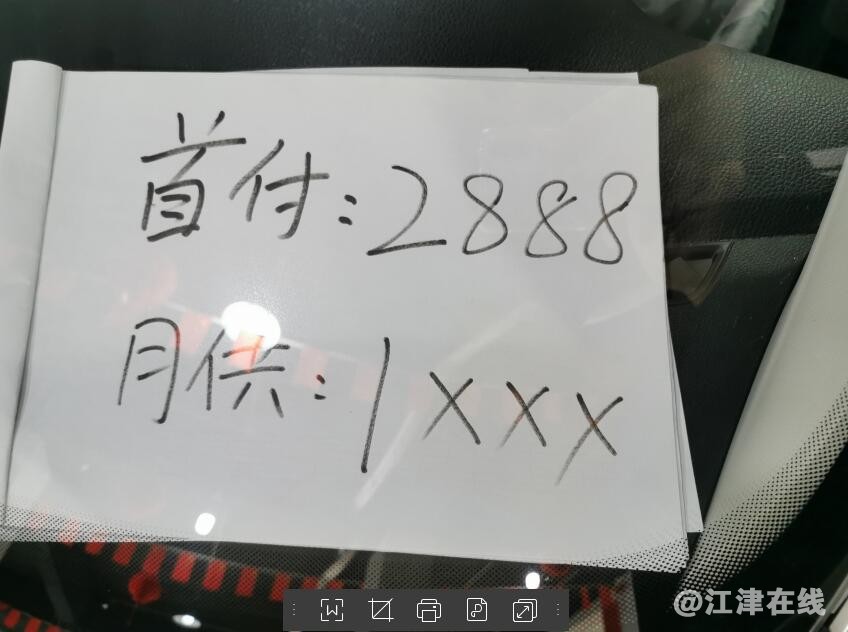 首付:2888
月供:1xxx
@江津在线